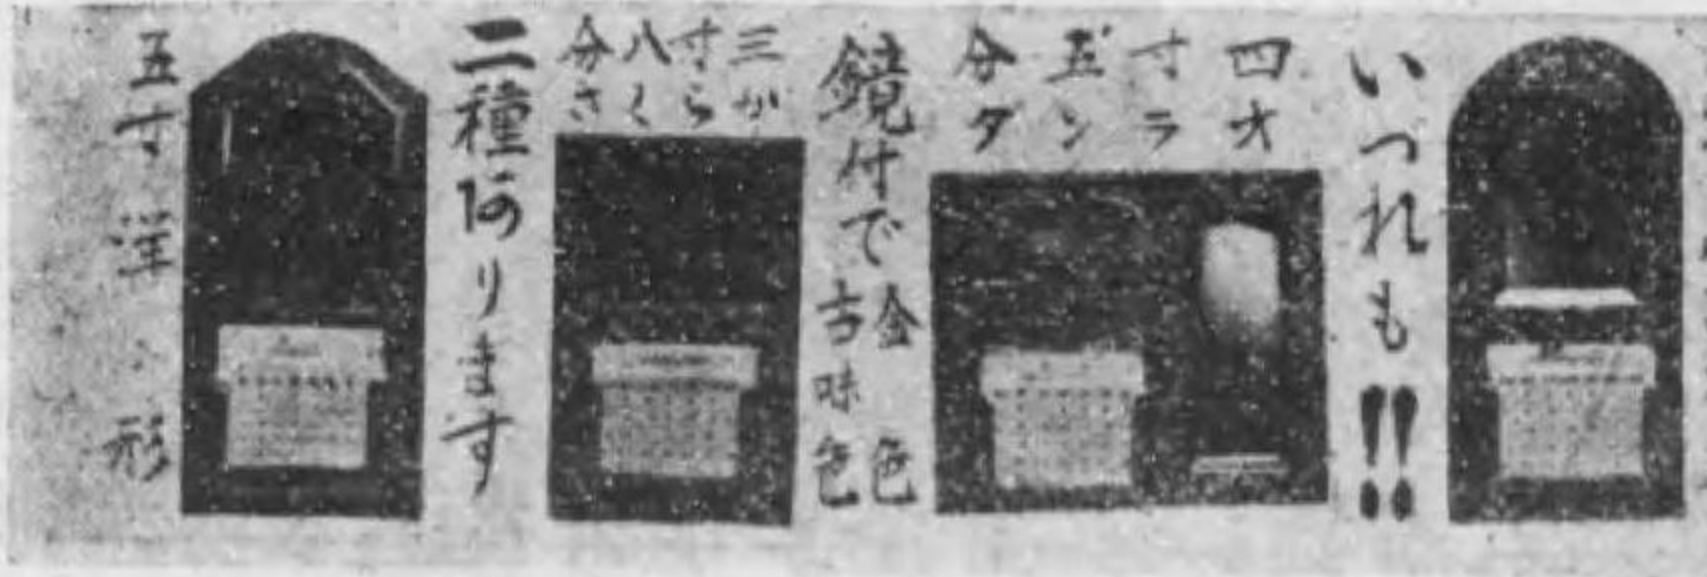 いづれも!!
四寸五分
オランダ
鏡付で
金色
古味色
三寸八分
からくさ
二種あります
五寸 形